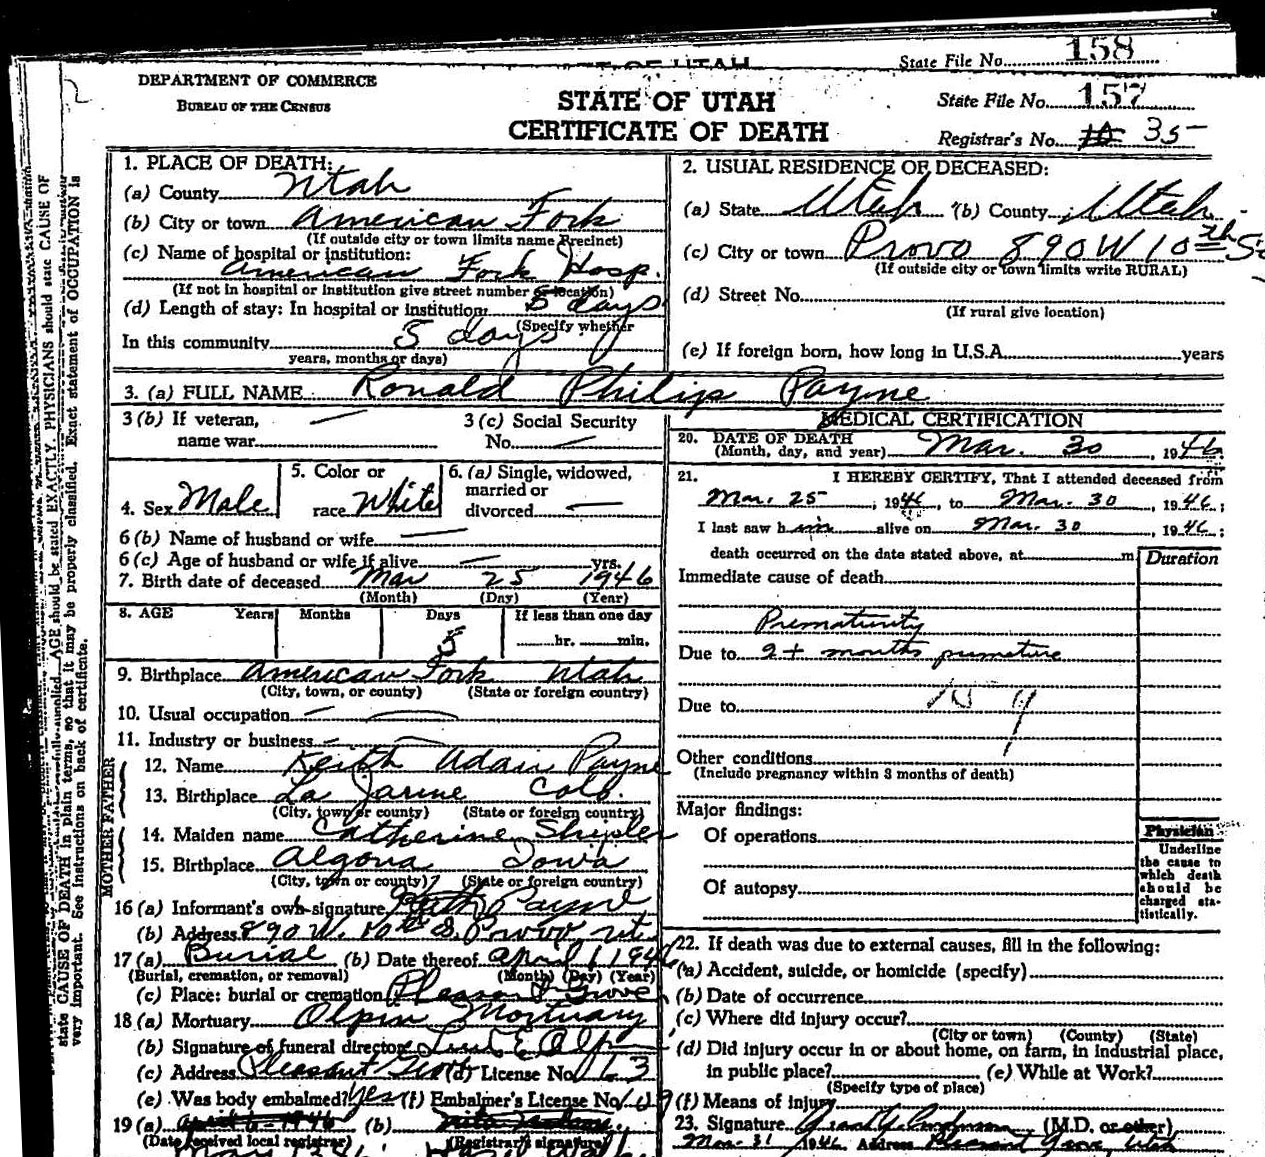 State File No. 158
DEPARTMENT OF COMMERCE
BUREAU OF THE CENSUS
STATE OF UTAH
CERTIFICATE OF DEATH
State File No. 157
Registrar's No. 35
state CAUSE OF DEATH in plain terms, so that it may be properly classified. Exact statement of OCCUPATION is
very important. See instructions on back of certificate.
1. PLACE OF DEATH:
(a) County Utah
(b) City or town American Fork
(If outside city or town limits name Precinct)
(c) Name of hospital or institution:
American Fork Hosp.
(If not in hospital or institution give street number or location)
(d) Length of stay: In hospital or institution: 5 days
(Specify whether
In this community 5 days
years, months or days)
2. USUAL RESIDENCE OF DECEASED:
(a) State Utah (b) County Utah
(c) City or town Provo 890 W 10th So
(If outside city or town limits write RURAL)
(d) Street No.
(If rural give location)
(e) If foreign born, how long in U.S.A. years
3. (a) FULL NAME Ronald Philip Payne
3 (b) If veteran, name war
3 (c) Social Security No.
4. Sex Male
5. Color or race White
6. (a) Single, widowed, married or divorced
6 (b) Name of husband or wife
6 (c) Age of husband or wife if alive yrs.
7. Birth date of deceased Mar 25 1946
(Month) (Day) (Year)
8. AGE Years Months Days If less than one day
5 hr. min.
9. Birthplace American Fork Utah
(City, town, or county) (State or foreign country)
10. Usual occupation
11. Industry or business
FATHER
12. Name Keith Adair Payne
13. Birthplace La Jarme Colo.
(City, town or county) (State or foreign country)
MOTHER
14. Maiden name Catherine Shipler
15. Birthplace Algona Iowa
(City, town or county) (State or foreign country)
16 (a) Informant's own signature Keith Payne
(b) Address 890 W. 10th S. Provo, Utah
17 (a) Burial (b) Date thereof April 1 1946
(Burial, cremation, or removal) (Month) (Day) (Year)
(c) Place: burial or cremation Pleasant Grove
18 (a) Mortuary Olpin Mortuary
(b) Signature of funeral director E. Olpin
(c) Address Pleasant Grove (d) License No. 163
(e) Was body embalmed? Yes (f) Embalmer's License No.
19 (a) April 6-1946 (b)
(Date received local registrar) (Registrar's signature)
MEDICAL CERTIFICATION
20. DATE OF DEATH
(Month, day, and year) Mar. 30, 1946
21. I HEREBY CERTIFY, That I attended deceased from
Mar. 25, 1946, to Mar. 30, 1946;
I last saw him alive on Mar. 30, 1946;
death occurred on the date stated above, at m
Duration
Immediate cause of death
Prematurity
Due to 2+ months premature
Due to
Other conditions
(Include pregnancy within 3 months of death)
Major findings:
Of operations
Of autopsy
Physician
Underline the cause to which death should be charged statistically.
22. If death was due to external causes, fill in the following:
(a) Accident, suicide, or homicide (specify)
(b) Date of occurrence
(c) Where did injury occur?
(City or town) (County) (State)
(d) Did injury occur in or about home, on farm, in industrial place,
in public place? (e) While at Work?
(Specify type of place)
(f) Means of injury
23. Signature (M.D. or other)
Mar. 31, 1946 Address Pleasant Grove, Utah